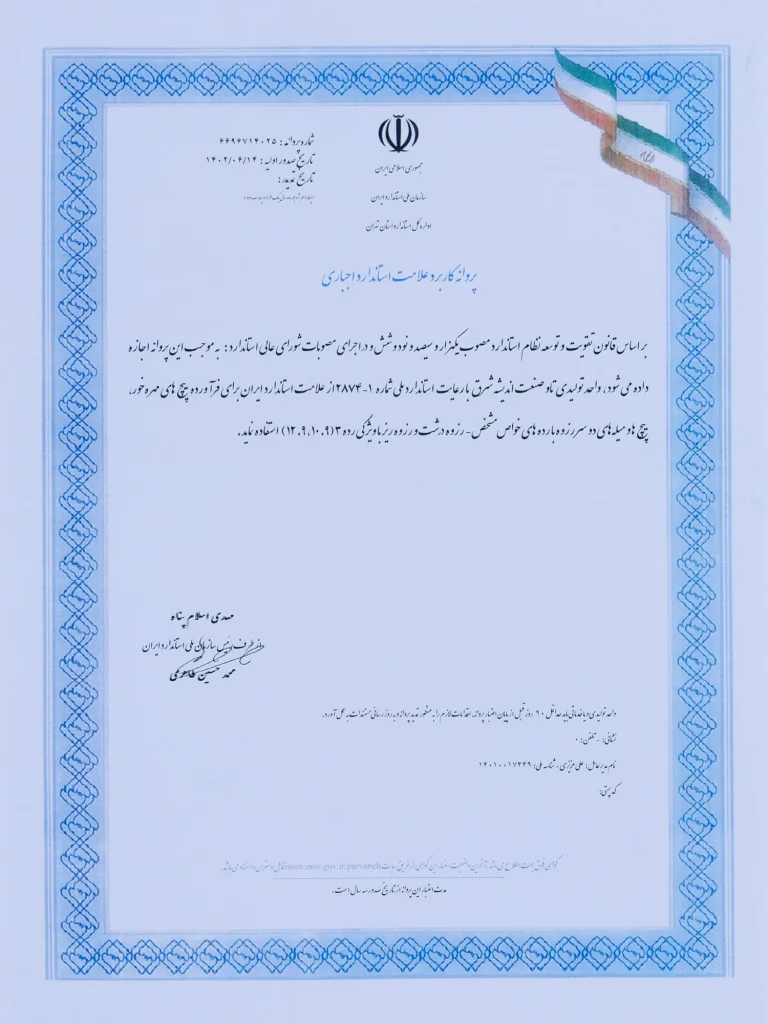 شماره پروانه: ۶۶۹۶۷۱۴۰۲۵
تاریخ صدور اولیه: ۱۴۰۲/۰۶/۱۴
تاریخ تمدید:
جمهوری اسلامی ایران
سازمان ملی استاندارد ایران
اداره کل استاندارد استان تهران
پروانه کاربرد علامت استاندارد اجباری
بر اساس قانون تقویت و توسعه نظام استاندارد مصوب یکهزار و سیصد و نود و شش و در اجرای مصوبات شورای عالی استاندارد: به موجب این پروانه اجازه
داده می شود، واحد تولیدی تاو صنعت اندیشه شرق با رعایت استاندارد ملی شماره ۱-۲۸۷۴ از علامت استاندارد ایران برای فرآورده پیچ های مهره خور،
پیچ ها و میله های دو سر رزوه با رده های خواص مشخص - رزوه درشت و رزوه ریز با ویژگی رده ۳ (۱۲.۹,۱۰.۹) استفاده نماید.
مهدی اسلام پناه
از طرف رئیس سازمان ملی استاندارد ایران
محمد حسین
واحد تولیدی و یا خدماتی باید حداقل ۹۰ روز قبل از پایان اعتبار پروانه، اقدامات لازم را به منظور تمدید پروانه و به روز رسانی مستندات به عمل آورد.
نشانی: - تلفن: ۰
نام مدیر عامل: علی عزیزی - شناسه ملی: ۱۴۰۱۰۰۱۷۴۴۹
کد پستی:
گواهی فوق جهت اطلاع می باشد، آخرین وضعیت اعتبار این گواهی از طریق سایت isom.inso.gov.ir/parvaneh قابل دسترس و استناد می باشد.
مدت اعتبار این پروانه از تاریخ صدور سه سال است.